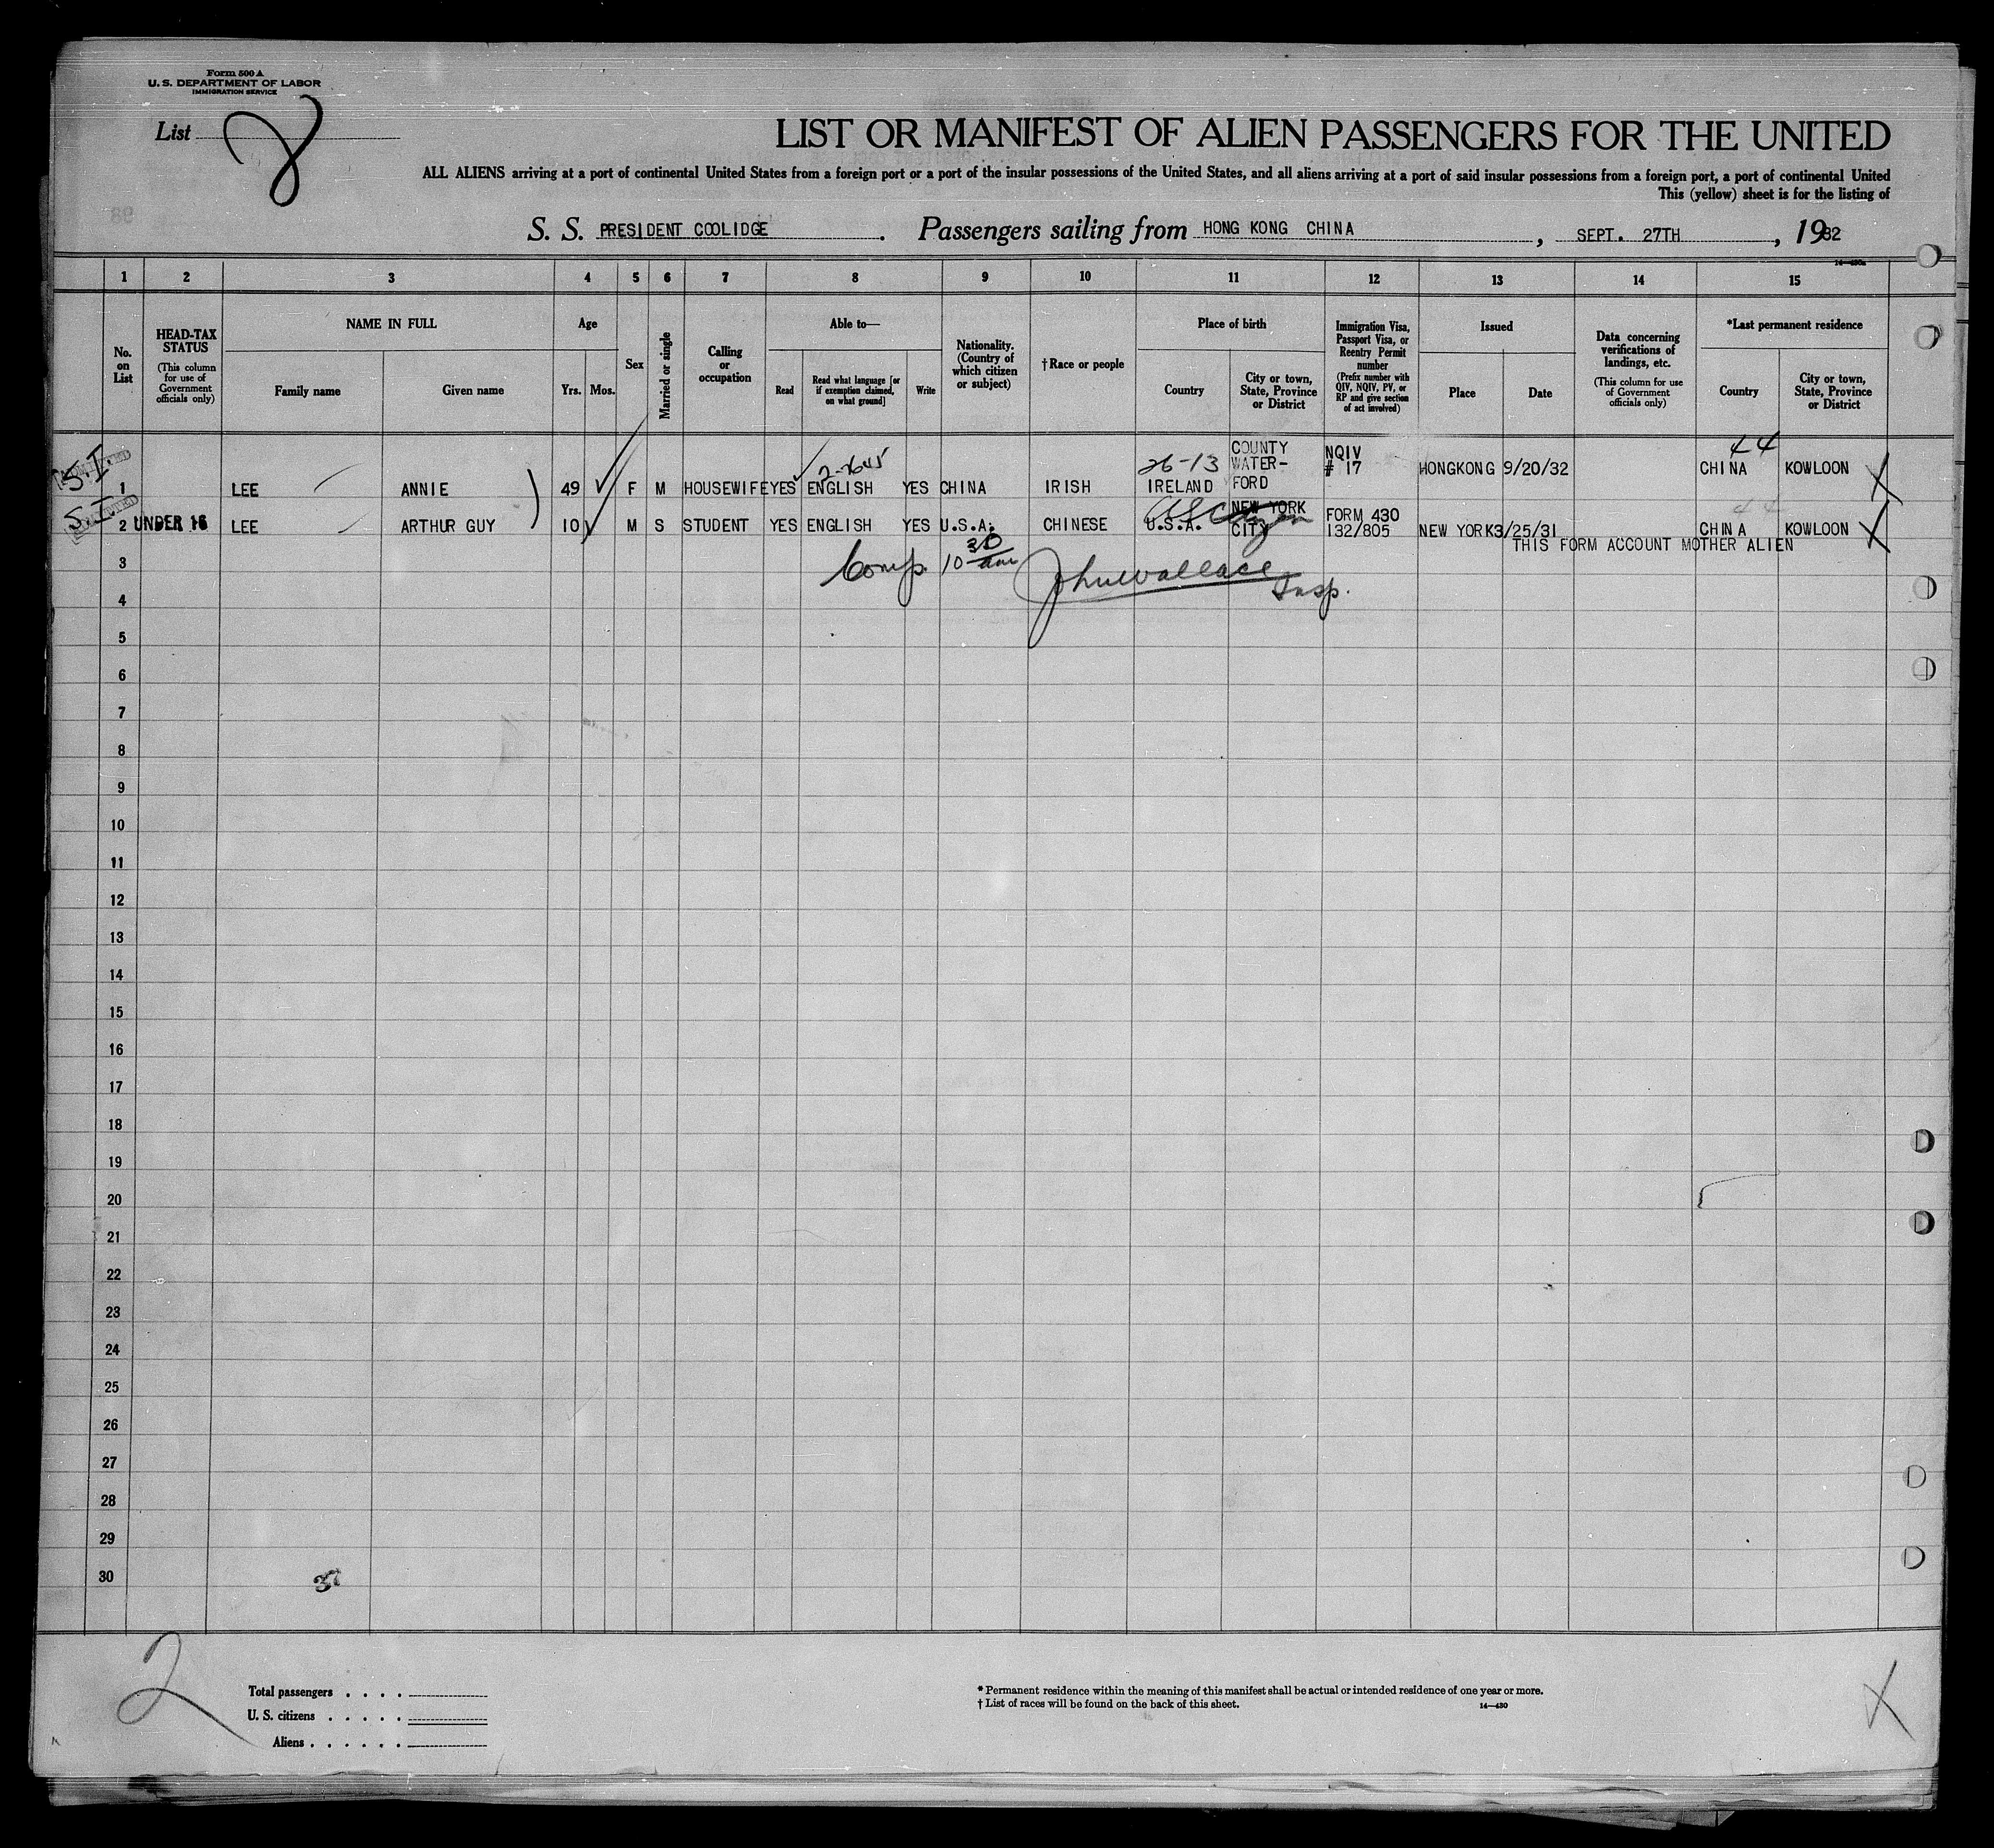 Form 500 A
U. S. DEPARTMENT OF LABOR
IMMIGRATION SERVICE
List 8
LIST OR MANIFEST OF ALIEN PASSENGERS FOR THE UNITED
ALL ALIENS arriving at a port of continental United States from a foreign port or a port of the insular possessions of the United States, and all aliens arriving at a port of said insular possessions from a foreign port, a port of continental United
This (yellow) sheet is for the listing of
98
S. S. PRESIDENT COOLIDGE. Passengers sailing from HONG KONG CHINA, SEPT. 27TH, 1932
14—430a
1 2 3 4 5 6 7 8 9 10 11 12 13 14 15
No. on List
HEAD-TAX STATUS
(This column for use of Government officials only)
NAME IN FULL
Family name Given name
Age
Yrs. Mos.
Sex
Married or single
Calling or occupation
Able to—
Read
Read what language [or if exemption claimed, on what ground]
Write
Nationality. (Country of which citizen or subject)
†Race or people
Place of birth
Country
City or town, State, Province or District
Immigration Visa, Passport Visa, or Reentry Permit number
(Prefix number with QIV, NQIV, PV, or RP and give section of act involved)
Issued
Place Date
Data concerning verifications of landings, etc.
(This column for use of Government officials only)
*Last permanent residence
Country
City or town, State, Province or District
S.I. ADMITTED 26-13 44
1 LEE ANNIE 49 F M HOUSEWIFE YES ENGLISH YES CHINA IRISH IRELAND COUNTY WATER-FORD NQIV # 17 HONGKONG 9/20/32 CHINA KOWLOON
S.I. ADMITTED US Citizen 44
2 UNDER 16 LEE ARTHUR GUY 10 M S STUDENT YES ENGLISH YES U.S.A. CHINESE U.S.A. NEW YORK CITY FORM 430 132/805 NEW YORK 3/25/31 CHINA KOWLOON
THIS FORM ACCOUNT MOTHER ALIEN
3 Comp. 10 30 am John Wallace Insp.
4
5
6
7
8
9
10
11
12
13
14
15
16
17
18
19
20
21
22
23
24
25
26
27
28
29
30
2
Total passengers . . . .
U. S. citizens . . . . .
Aliens . . . . . .
* Permanent residence within the meaning of this manifest shall be actual or intended residence of one year or more.
† List of races will be found on the back of this sheet.
14—430
X